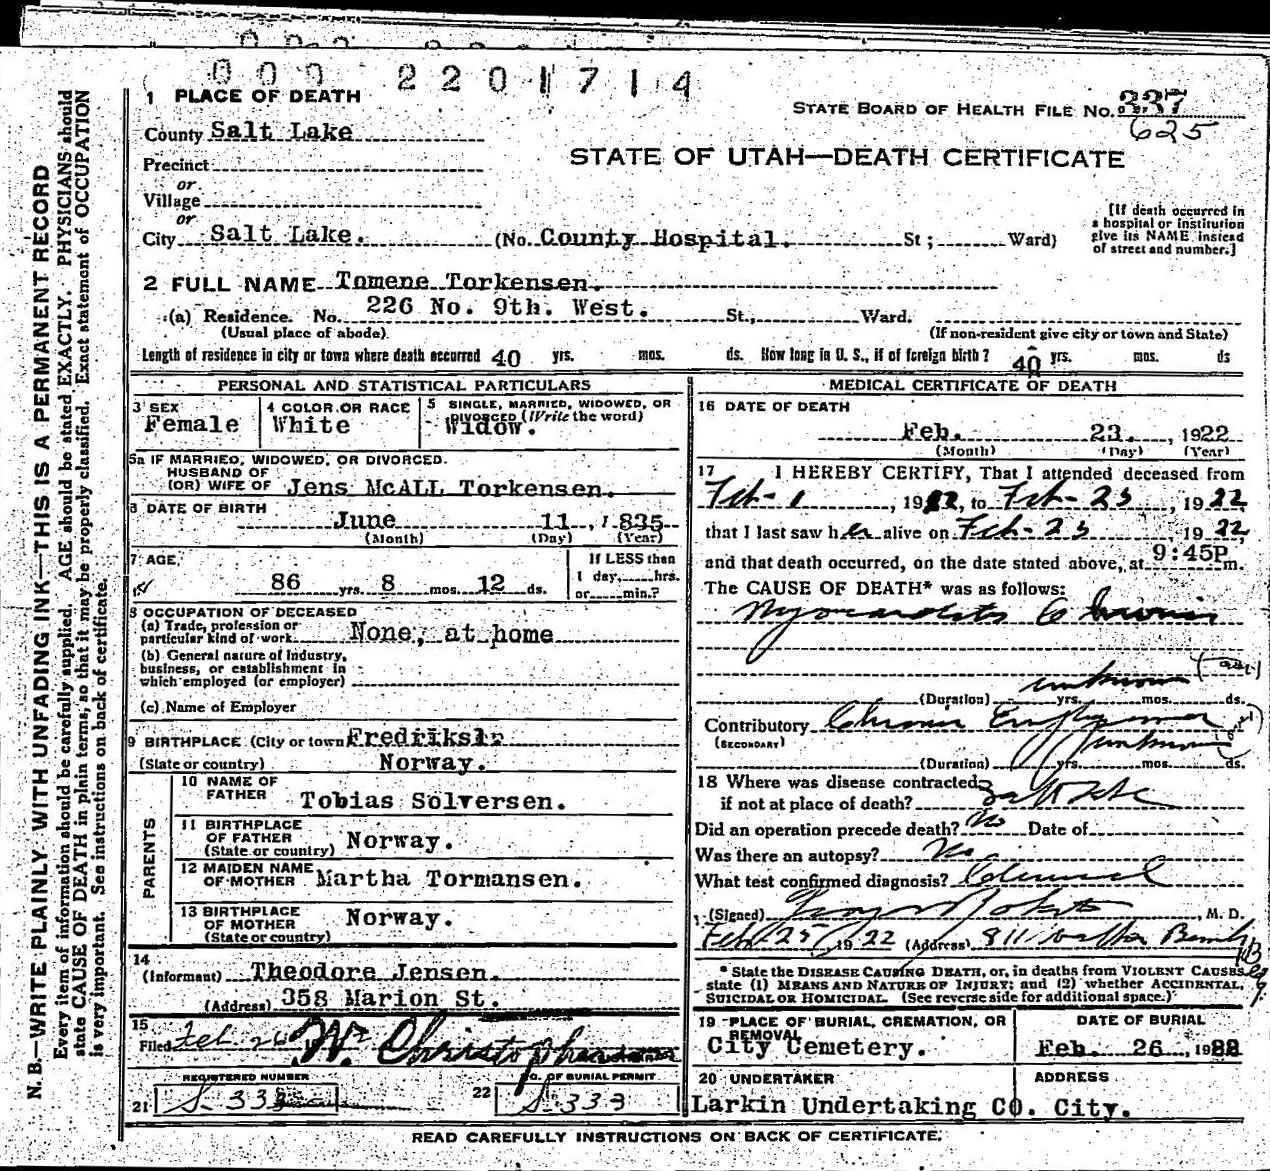 000 2201714
1 PLACE OF DEATH
STATE BOARD OF HEALTH FILE NO. 337
625
County Salt Lake
STATE OF UTAH—DEATH CERTIFICATE
Precinct
or
Village
or
City Salt Lake. (No. County Hospital. St; Ward)
[If death occurred in
a hospital or institution
give its NAME instead
of street and number.]
2 FULL NAME Tomene Torkensen.
(a) Residence. No. 226 No. 9th. West. St., Ward.
(Usual place of abode) (If non-resident give city or town and State)
Length of residence in city or town where death occurred 40 yrs. mos. ds. How long in U. S., if of foreign birth? 40 yrs. mos. ds
PERSONAL AND STATISTICAL PARTICULARS
3 SEX
Female
4 COLOR OR RACE
White
5 SINGLE, MARRIED, WIDOWED, OR
DIVORCED (Write the word)
Widow.
5a IF MARRIED, WIDOWED, OR DIVORCED.
HUSBAND OF
(OR) WIFE OF Jens McALL Torkensen.
6 DATE OF BIRTH
June 11, 1835
(Month) (Day) (Year)
7 AGE
86 yrs. 8 mos. 12 ds.
If LESS than
1 day, hrs.
or min.?
8 OCCUPATION OF DECEASED
(a) Trade, profession or
particular kind of work None, at home
(b) General nature of industry,
business, or establishment in
which employed (or employer)
(c) Name of Employer
9 BIRTHPLACE (City or town
(State or country) Norway.
PARENTS
10 NAME OF
FATHER Tobias Solversen.
11 BIRTHPLACE
OF FATHER
(State or country) Norway.
12 MAIDEN NAME
OF MOTHER Martha Tormansen.
13 BIRTHPLACE
OF MOTHER
(State or country) Norway.
14
(Informant) Theodore Jensen.
(Address) 358 Marion St.
15
Filed Feb 26 W. Christophersen
REGISTERED NUMBER
21 S. 333
NO. OF BURIAL PERMIT
22 S. 333
MEDICAL CERTIFICATE OF DEATH
16 DATE OF DEATH
Feb. 23. , 1922
(Month) (Day) (Year)
17 I HEREBY CERTIFY, That I attended deceased from
Feb-1, 1922, to Feb-23, 1922,
that I last saw her alive on Feb-23, 1922,
and that death occurred, on the date stated above, at 9:45P m.
The CAUSE OF DEATH* was as follows:
Myocarditis Chronic
unknown
(Duration) yrs. mos. ds.
Contributory Chronic
(SECONDARY)
unknown
(Duration) yrs. mos. ds.
18 Where was disease contracted
if not at place of death? Salt Lake
Did an operation precede death? No Date of
Was there an autopsy? No
What test confirmed diagnosis? Clinical
(Signed) , M. D.
Feb 25, 1922 (Address) 811 Walker Bank
* State the DISEASE CAUSING DEATH, or, in deaths from VIOLENT CAUSES,
state (1) MEANS AND NATURE OF INJURY; and (2) whether ACCIDENTAL,
SUICIDAL OR HOMICIDAL. (See reverse side for additional space.)
19 PLACE OF BURIAL, CREMATION, OR
REMOVAL
City Cemetery.
DATE OF BURIAL
Feb. 26, 1922
20 UNDERTAKER ADDRESS
Larkin Undertaking CO. City.
READ CAREFULLY INSTRUCTIONS ON BACK OF CERTIFICATE.
N. B.—WRITE PLAINLY WITH UNFADING INK—THIS IS A PERMANENT RECORD
Every item of information should be carefully supplied. AGE should be stated EXACTLY. PHYSICIANS should
state CAUSE OF DEATH in plain terms, so that it may be properly classified. Exact statement of OCCUPATION
is very important. See instructions on back of certificate.